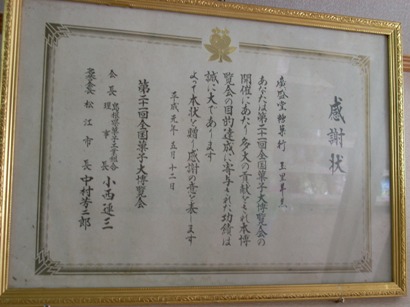 感謝状
糖菓行
あなたは第二十一回全国菓子大博覧会の
開催にあたり多大の貢献をされ本博
覧会の目的達成に寄与された功績は
誠に大であります
よって本状を贈り感謝の意を表します
平成元年五月十二日
第二十一回全国菓子大博覧会
会長 島根県菓子工業組合 理事長 小西達三
松江市長 中村芳二郎